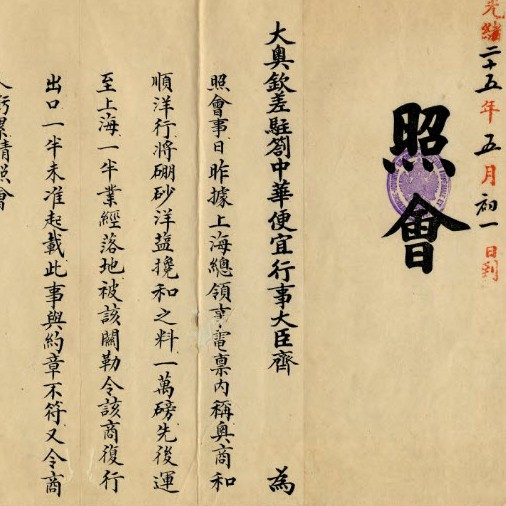 光緒二十五年五月初一日到
照會
大奧欽差駐劄中華便宜行事大臣齊 為
照會事日昨據上海總領事電禀內稱奧商和
順洋行將硼砂洋盐搀和之料一萬磅先後運
至上海一半業經落地被該關勒令該商復行
出口一半未准起載此事與約章不符又令商
人虧累請照會